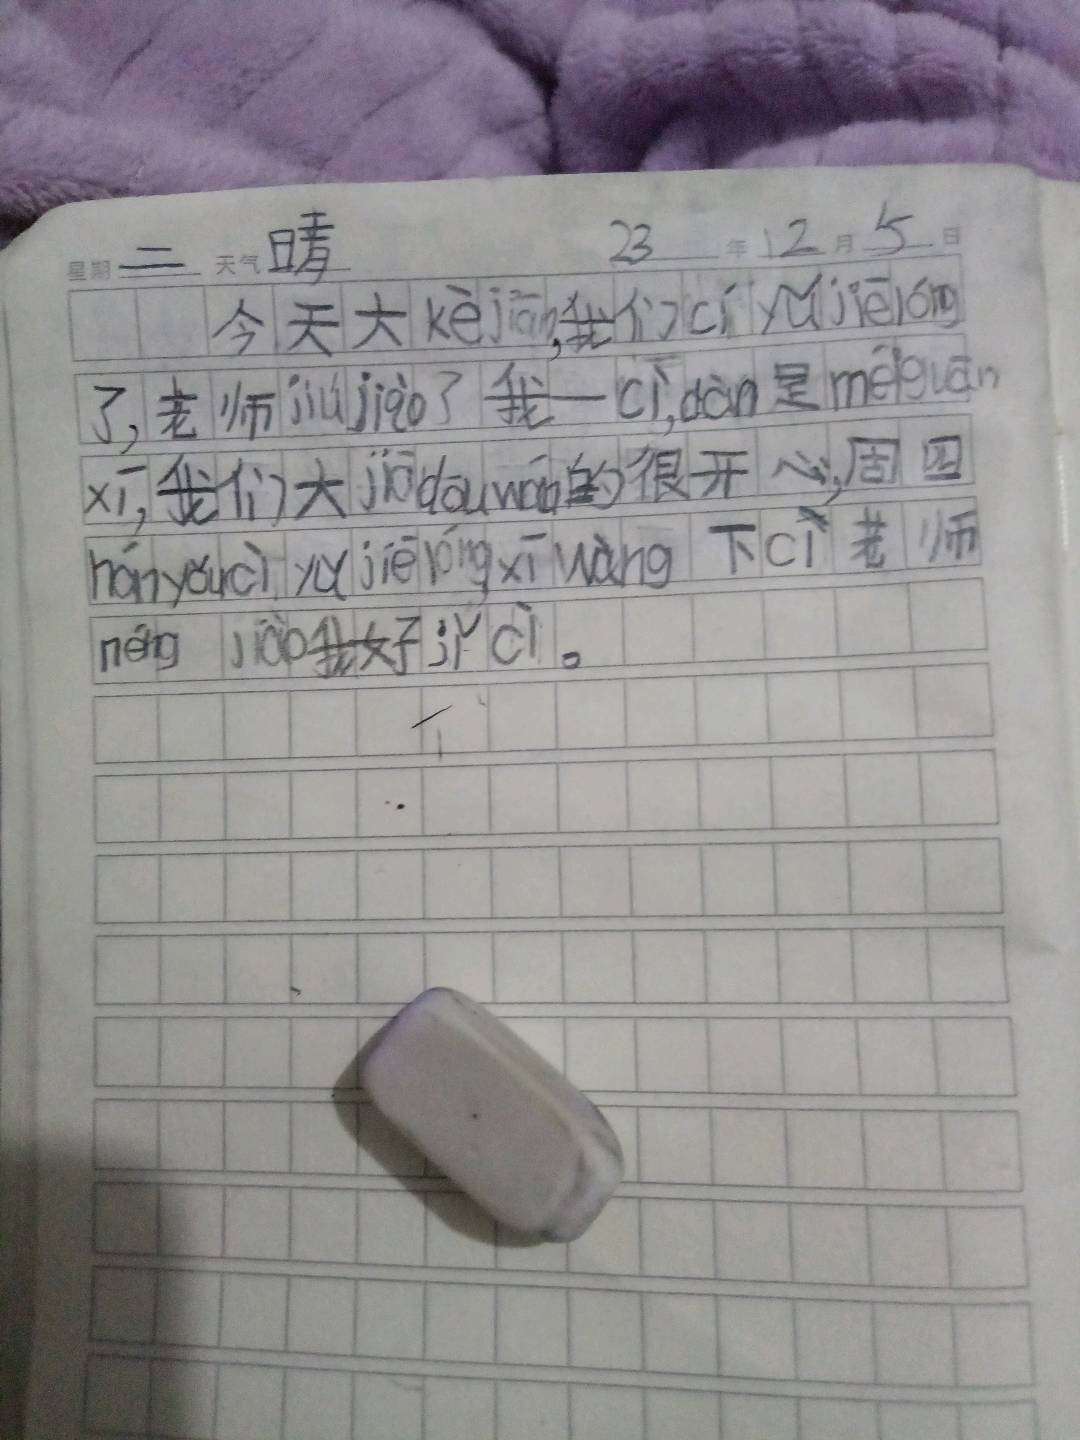 星期 二 天气 晴 23 年 12 月 5 日
今天大kèjiān,我们cí yǔ jiē lóng
了,老师jiú jiào了我一cì,dàn是méi guān
xī,我们大jiā dōu wán的很开心,周四
hán yǒu cì yǔ jiē lóng xī wàng 下cì老师
néng jiào我好jǐ cì。